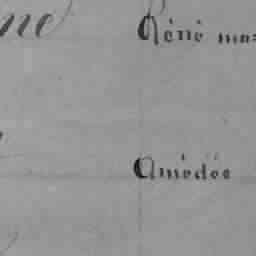 ne Réné ma
Amédée